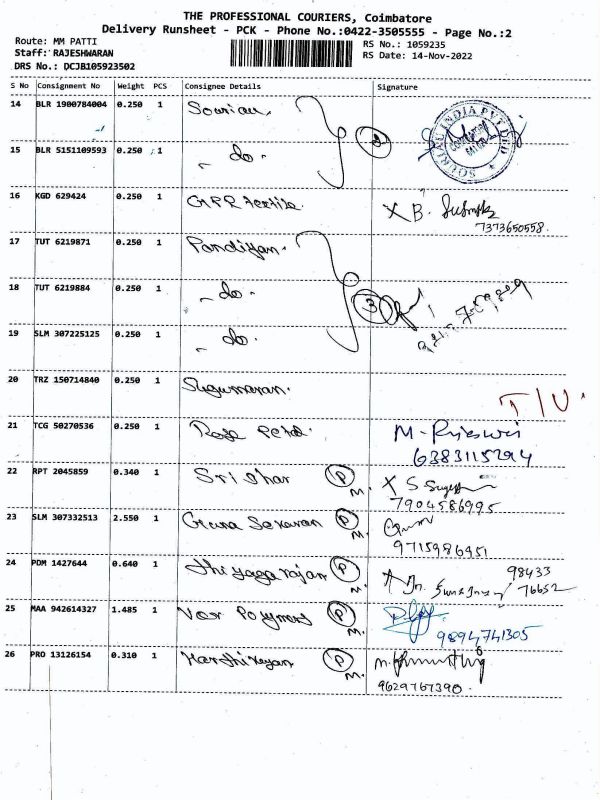 THE PROFESSIONAL COURIERS, Coimbatore
Delivery Runsheet - PCK - Phone No.:0422-3505555 - Page No.:2
Route: MM PATTI
RS No.: 1059235
Staff: RAJESHWARAN
RS Date: 14-Nov-2022
DRS No.: DCJB105923502
S No Consignment No Weight PCS Consignee Details Signature
14 BLR 1900784004 0.250 1 Souriau
15 BLR 5151109593 0.250 1 - do - 2
16 KGD 629424 0.250 1 GPR textile X B.
7373650558.
17 TUT 6219871 0.250 1 Pandiyan.
18 TUT 6219884 0.250 1 - do - 3
19 SLM 307225125 0.250 1 - do -
20 TRZ 150714840 0.250 1 Sugumaran. T/U.
21 TCG 50270536 0.250 1 Rose Petal. M.
6383115294
22 RPT 2045859 0.340 1 Sridhar P M. X S
7904586995
23 SLM 307332513 2.550 1 Guna Sekaran P M.
9715986451
24 PDM 1427644 0.640 1 Thiyagarajan P M. 98433
76652
25 MAA 942614327 1.485 1 Var Polymers P M.
9894741305
26 PRO 13126154 0.310 1 Karthikeyan P M.
9629767390.